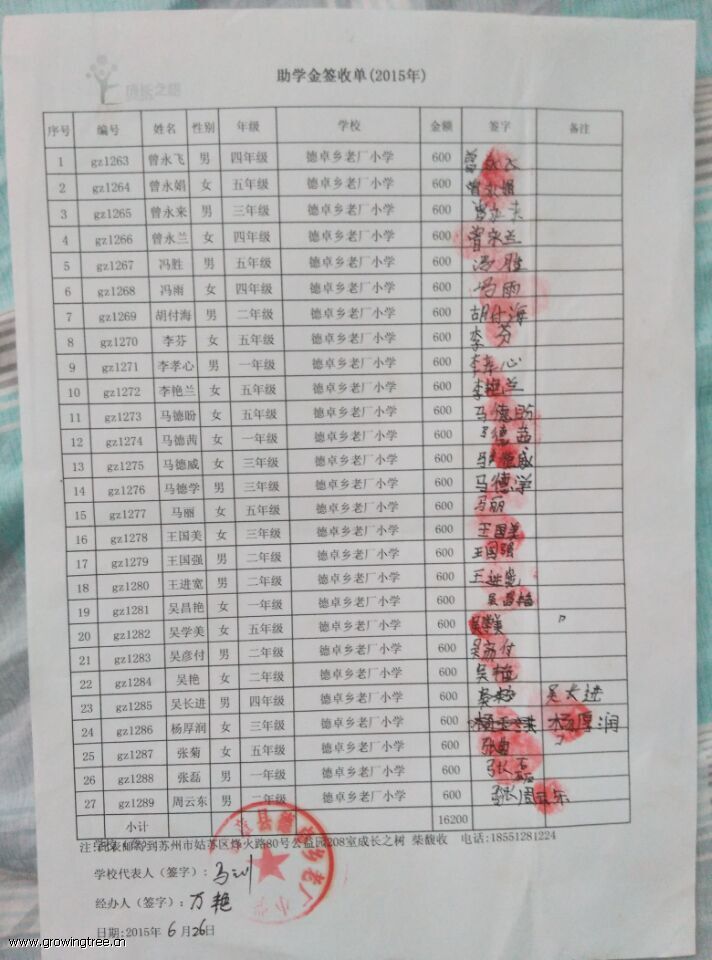 成长之树
助学金签收单(2015年)
序号 编号 姓名 性别 年级 学校 金额 签字 备注
1 gz1263 曾永飞 男 四年级 德卓乡老厂小学 600 曾永飞
2 gz1264 曾永娟 女 五年级 德卓乡老厂小学 600 曾永娟
3 gz1265 曾永来 男 三年级 德卓乡老厂小学 600 曾永来
4 gz1266 曾永兰 女 四年级 德卓乡老厂小学 600 曾永兰
5 gz1267 冯胜 男 五年级 德卓乡老厂小学 600 冯胜
6 gz1268 冯雨 女 四年级 德卓乡老厂小学 600 冯雨
7 gz1269 胡付海 男 二年级 德卓乡老厂小学 600 胡付海
8 gz1270 李芬 女 五年级 德卓乡老厂小学 600 李芬
9 gz1271 李孝心 男 一年级 德卓乡老厂小学 600 李孝心
10 gz1272 李艳兰 女 五年级 德卓乡老厂小学 600 李艳兰
11 gz1273 马德盼 女 五年级 德卓乡老厂小学 600 马德盼
12 gz1274 马德茜 女 一年级 德卓乡老厂小学 600 马德茜
13 gz1275 马德威 女 三年级 德卓乡老厂小学 600 马德威
14 gz1276 马德学 男 三年级 德卓乡老厂小学 600 马德学
15 gz1277 马丽 女 五年级 德卓乡老厂小学 600 马丽
16 gz1278 王国美 女 三年级 德卓乡老厂小学 600 王国美
17 gz1279 王国强 男 二年级 德卓乡老厂小学 600 王国强
18 gz1280 王进宽 男 二年级 德卓乡老厂小学 600 王进宽
19 gz1281 吴昌艳 女 一年级 德卓乡老厂小学 600 吴昌艳
20 gz1282 吴学美 女 五年级 德卓乡老厂小学 600 吴学美
21 gz1283 吴彦付 男 二年级 德卓乡老厂小学 600 吴彦付
22 gz1284 吴艳 女 二年级 德卓乡老厂小学 600 吴艳
23 gz1285 吴长进 男 四年级 德卓乡老厂小学 600 吴长进
24 gz1286 杨厚润 女 三年级 德卓乡老厂小学 600 杨厚润
25 gz1287 张菊 女 五年级 德卓乡老厂小学 600 张菊
26 gz1288 张磊 男 一年级 德卓乡老厂小学 600 张磊
27 gz1289 周云东 男 二年级 德卓乡老厂小学 600 周云东
小计 16200
注:此表邮寄到苏州市姑苏区烽火路80号公益园208室成长之树 柴馥收 电话:18551281224
学校代表人(签字):
经办人(签字):万艳
日期:2015年 6月26日
www.growingtree.cn